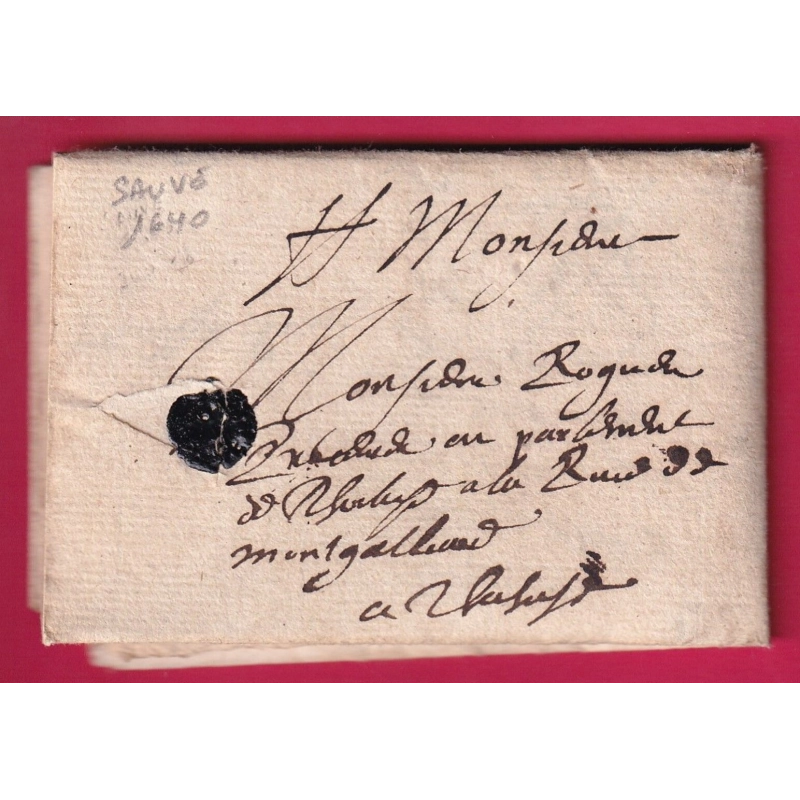 SAUVE
1640
Monsieur
Monsieur
en parlement
de Tholose a la Rue de
montgalhard
a Tholose